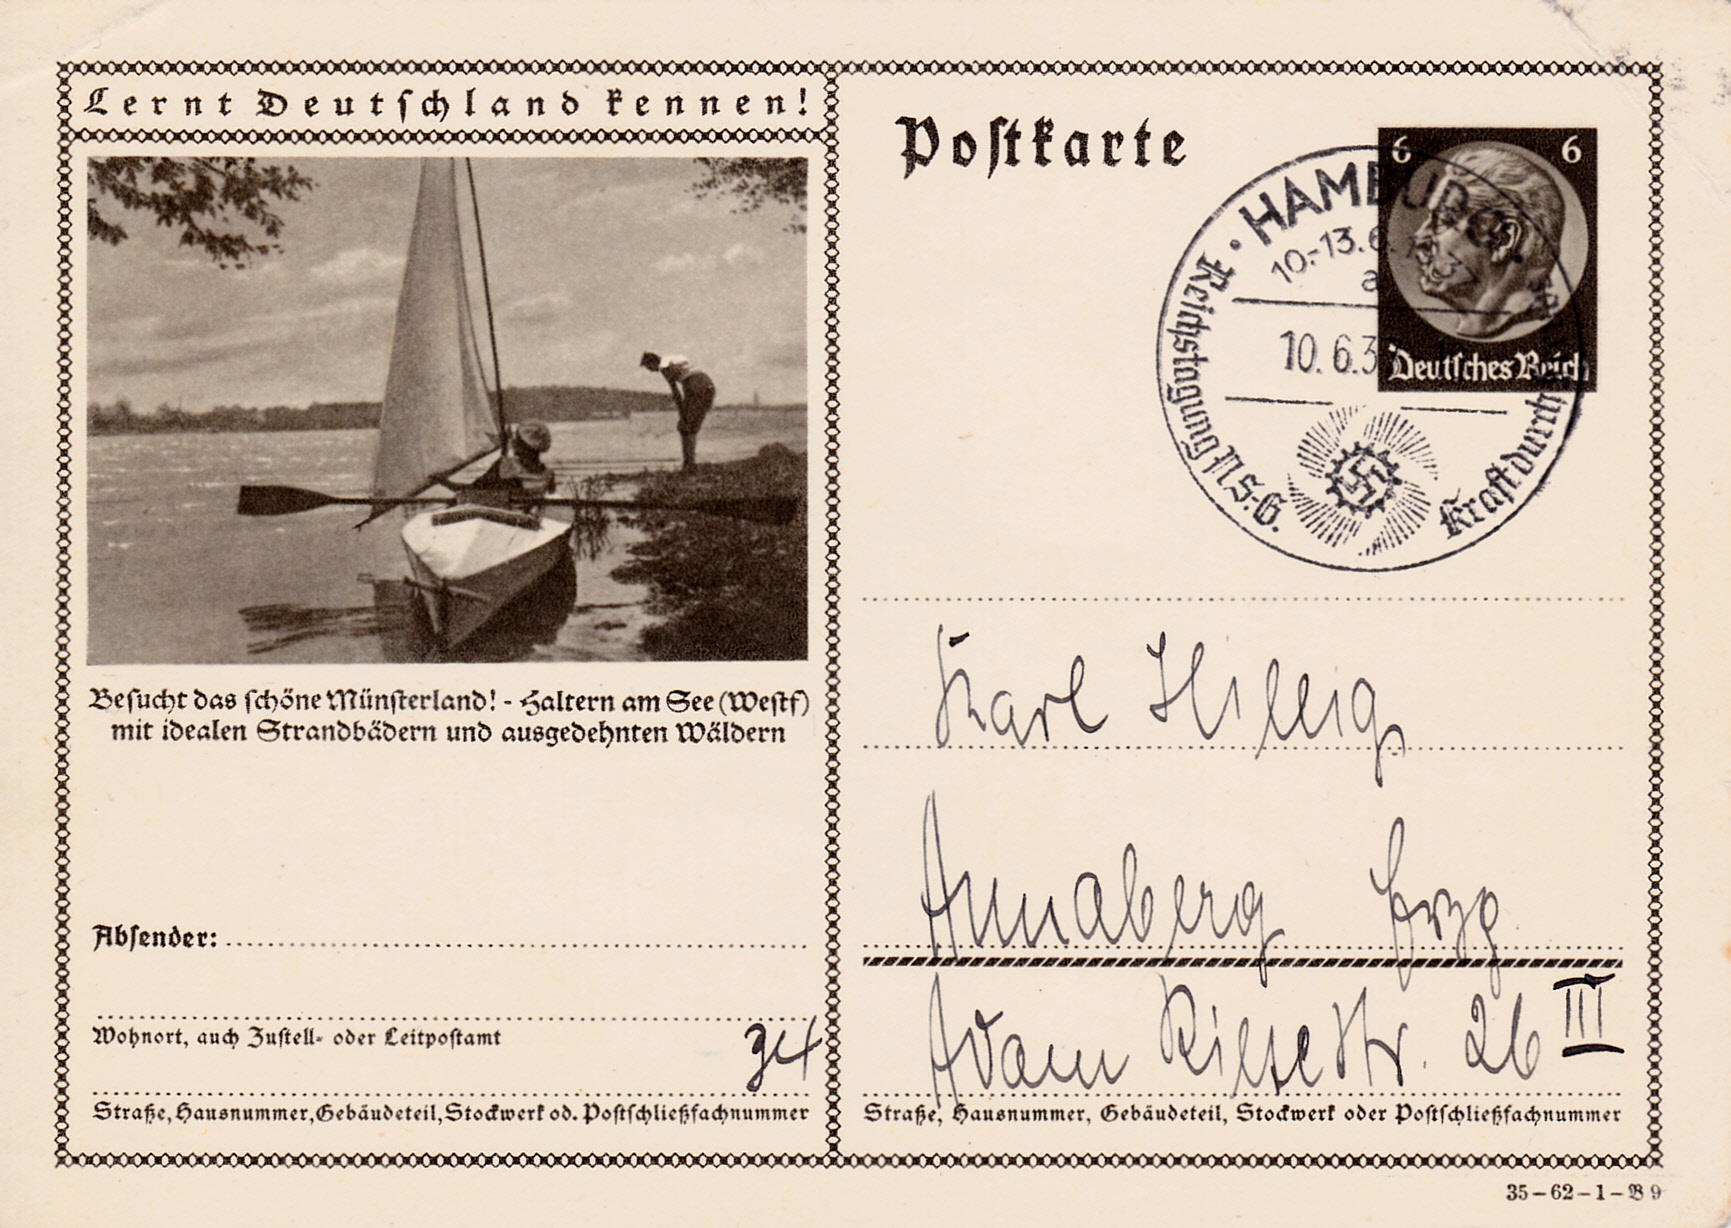 Lernt Deutschland kennen!
Besucht das schöne Münsterland! - Haltern am See (Westf)
mit idealen Strandbädern und ausgedehnten Wäldern
Absender:
Wohnort, auch Zustell- oder Leitpostamt
34
Straße, Hausnummer, Gebäudeteil, Stockwerk od. Postschließfachnummer
Postkarte
6 6
Deutsches Reich
HAMBURG
10.-13.6.1937
a
10.6.3
Reichstagung N.S.-G. Kraft durch
Karl Hillig
Annaberg Erzg
Adam Riese Str. 26 III
Straße, Hausnummer, Gebäudeteil, Stockwerk oder Postschließfachnummer
35-62-1-B 9